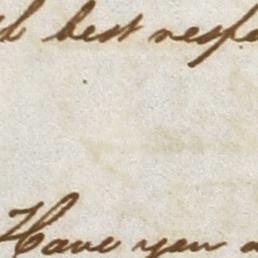 best respe
Have you